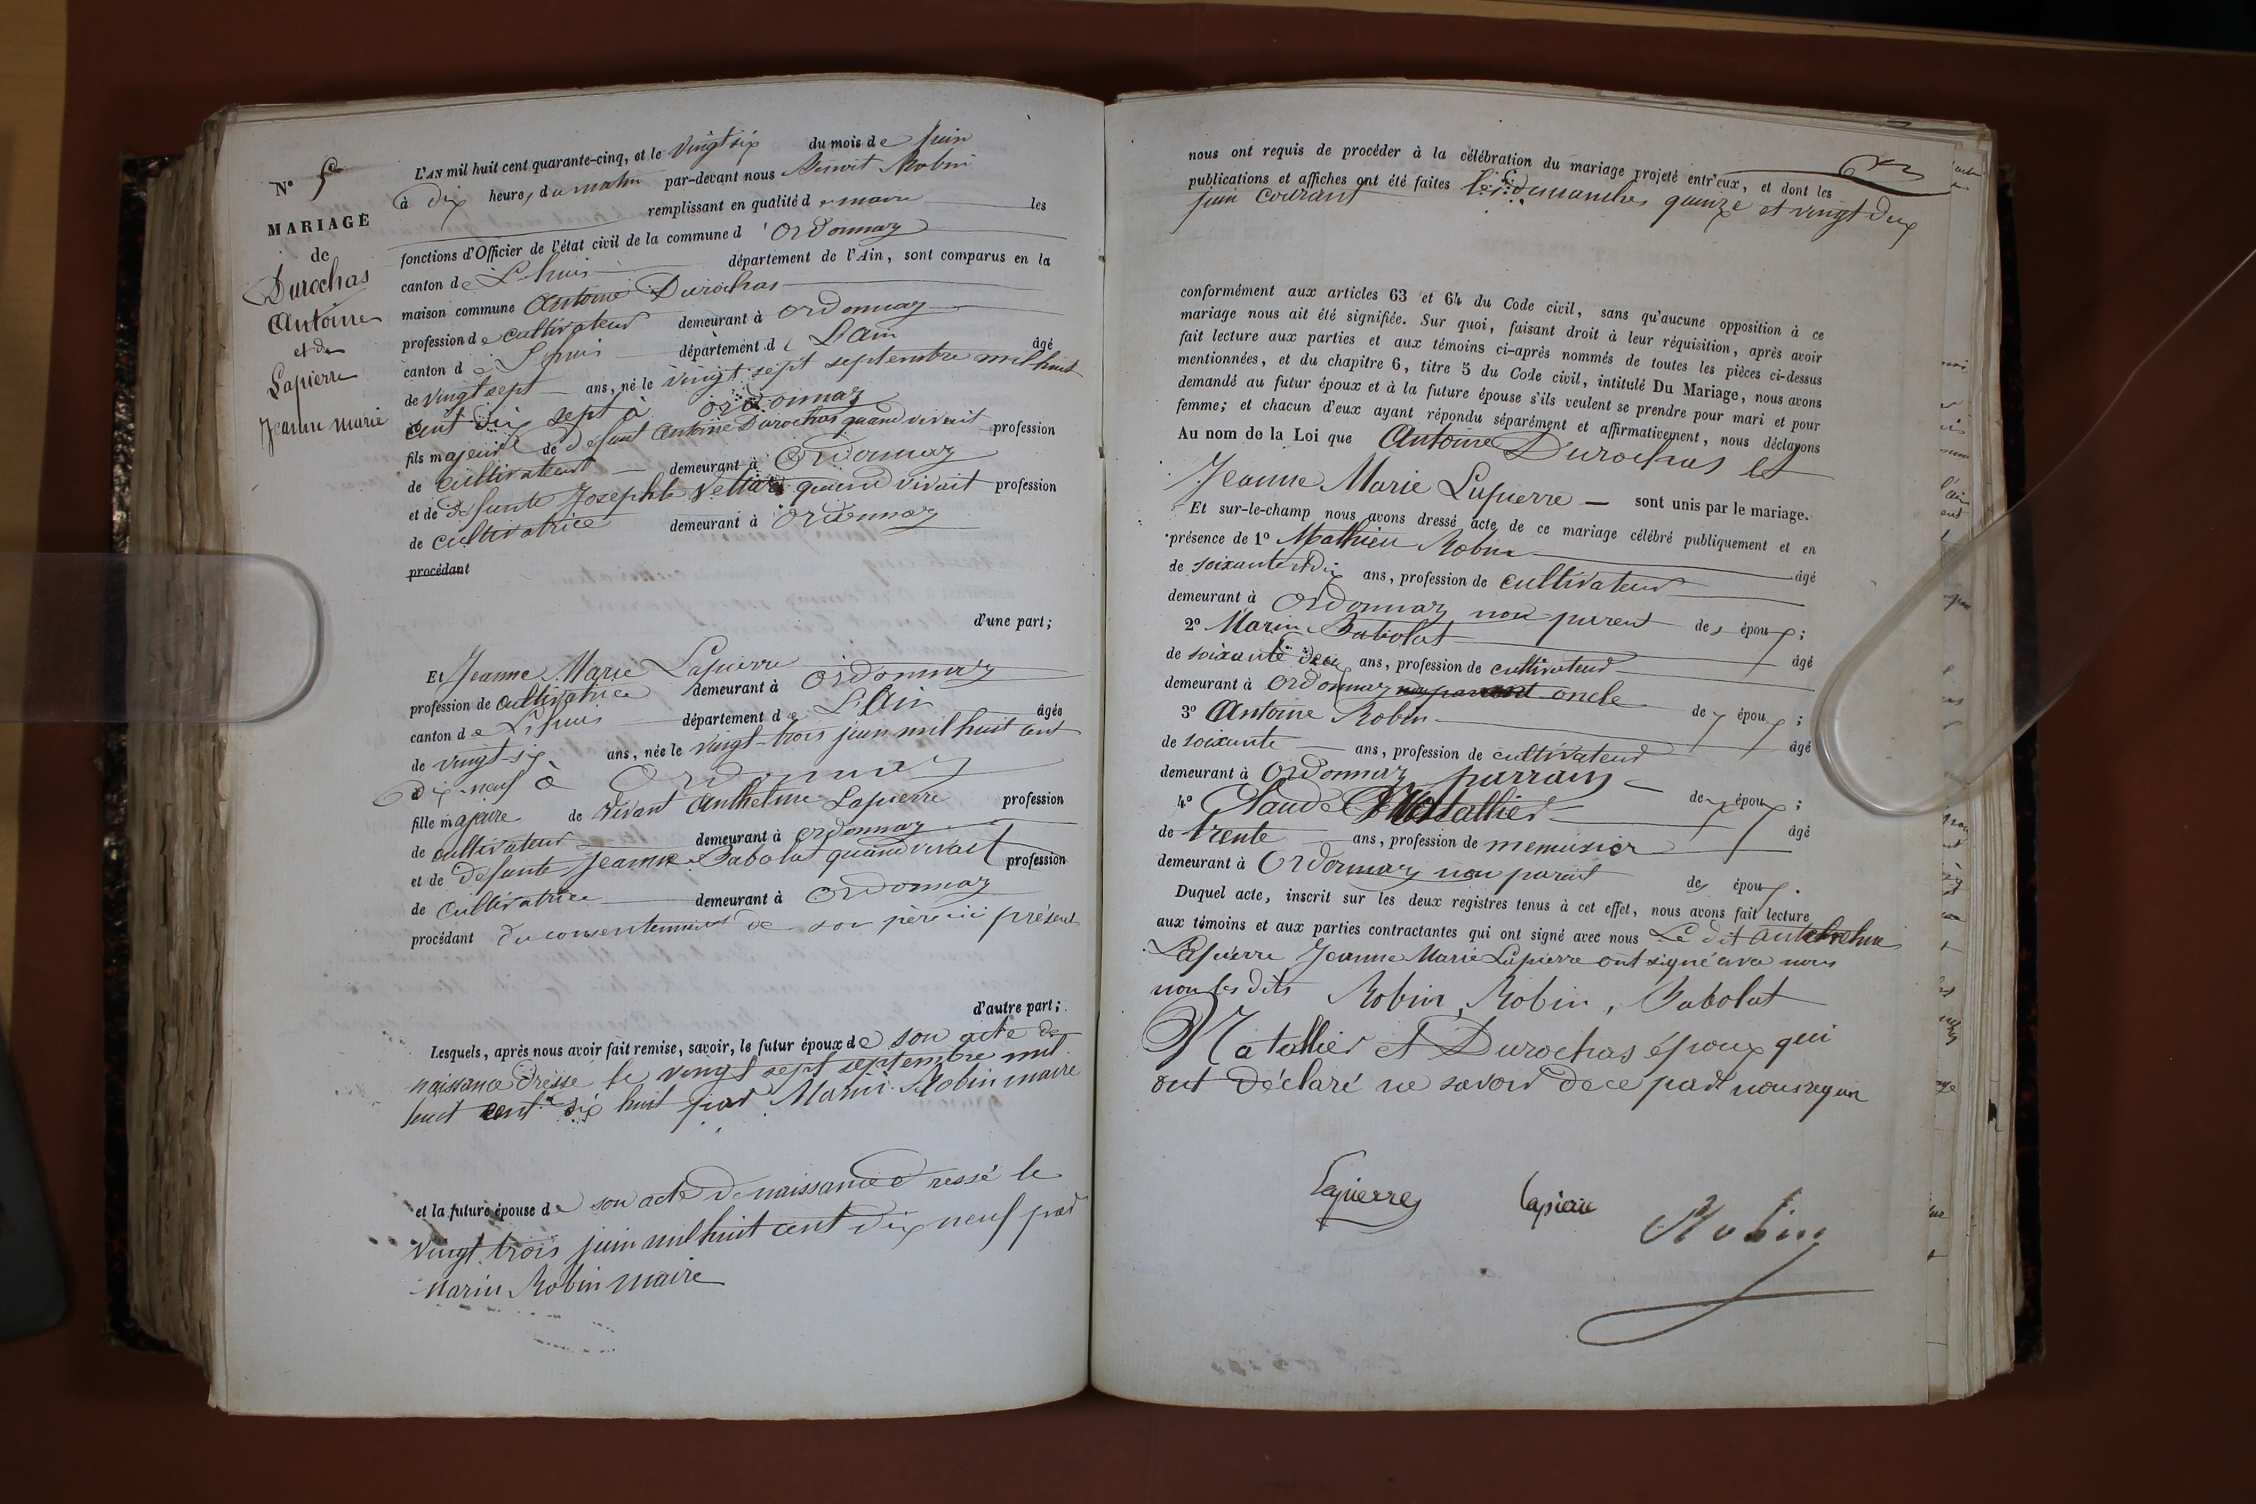 N° 5
MARIAGE
de
Durochas
Antoine
et de
Lapierre
Jeanne marie
L'AN mil huit cent quarante-cinq, et le vingt six du mois de juin
à dix heures du matin par-devant nous Benoit Robin
remplissant en qualité de maire les
fonctions d'Officier de l'état civil de la commune d'ordonnaz
canton de L-huis département de l'Ain, sont comparus en la
maison commune Antoine Durochas
profession de cultivateur demeurant à ordonnaz
canton de Lhuis département de L'ain âgé
de vingt sept ans, né le vingt sept septembre mil huit
cent dix sept à ordonnaz
fils majeur de defunt Antoine Durochas quand vivait profession
de cultivateur demeurant à Ordonnaz
et de defunte Josephte quand vivait profession
de cultivatrice demeurant à Ordonnaz
procédant
d'une part;
Et Jeanne Marie Lapierre
profession de cultivatrice demeurant à ordonnaz
canton de Lhuis département de L'Ain âgée
de vingt-six ans, née le vingt-trois juin mil huit cent
dix-neuf à Ordonnaz
fille majeure de vivant Anthelme Lapierre profession
de cultivateur demeurant à ordonnaz
et de defunte Jeanne Babolat quand vivait profession
de cultivatrice demeurant à ordonnaz
procédant du consentement de son père ici présent
d'autre part;
Lesquels, après nous avoir fait remise, savoir, le futur époux de son acte de
naissance dressé le vingt sept septembre mil
huit cent dix huit par Marin Robin maire
et la future épouse de son acte de naissance dressé le
vingt trois juin mil huit cent dix neuf par
Marin Robin maire
nous ont requis de procéder à la célébration du mariage projeté entr'eux, et dont les
publications et affiches ont été faites les dimanches quinze et vingt deux
juin courant
conformément aux articles 63 et 64 du Code civil, sans qu'aucune opposition à ce
mariage nous ait été signifiée. Sur quoi, faisant droit à leur réquisition, après avoir
fait lecture aux parties et aux témoins ci-après nommés de toutes les pièces ci-dessus
mentionnées, et du chapitre 6, titre 5 du Code civil, intitulé Du Mariage, nous avons
demandé au futur époux et à la future épouse s'ils veulent se prendre pour mari et pour
femme; et chacun d'eux ayant répondu séparément et affirmativement, nous déclarons
Au nom de la Loi que Antoine Durochas et
Jeanne Marie Lapierre — sont unis par le mariage.
Et sur-le-champ nous avons dressé acte de ce mariage célébré publiquement et en
présence de 1° Mathieu Robin âgé
de soixante et dix ans, profession de cultivateur
demeurant à Ordonnaz non parent des époux;
2° Marin Babolat âgé
de soixante deux ans, profession de cultivateur
demeurant à ordonnaz non parent oncle des époux;
3° Antoine Robin âgé
de soixante ans, profession de cultivateur
demeurant à Ordonnaz parrain des époux;
4° Claude Matallier âgé
de trente ans, profession de menuisier
demeurant à Ordonnaz non parent des époux.
Duquel acte, inscrit sur les deux registres tenus à cet effet, nous avons fait lecture
aux témoins et aux parties contractantes qui ont signé avec nous Le dit anthelme
Lapierre Jeanne Marie Lapierre ont signé avec nous
non les dits Robin, Robin, Babolat
Matallier et Durochas époux qui
ont déclaré ne savoir de ce part nous requis
Lapierre Lapierre Robin